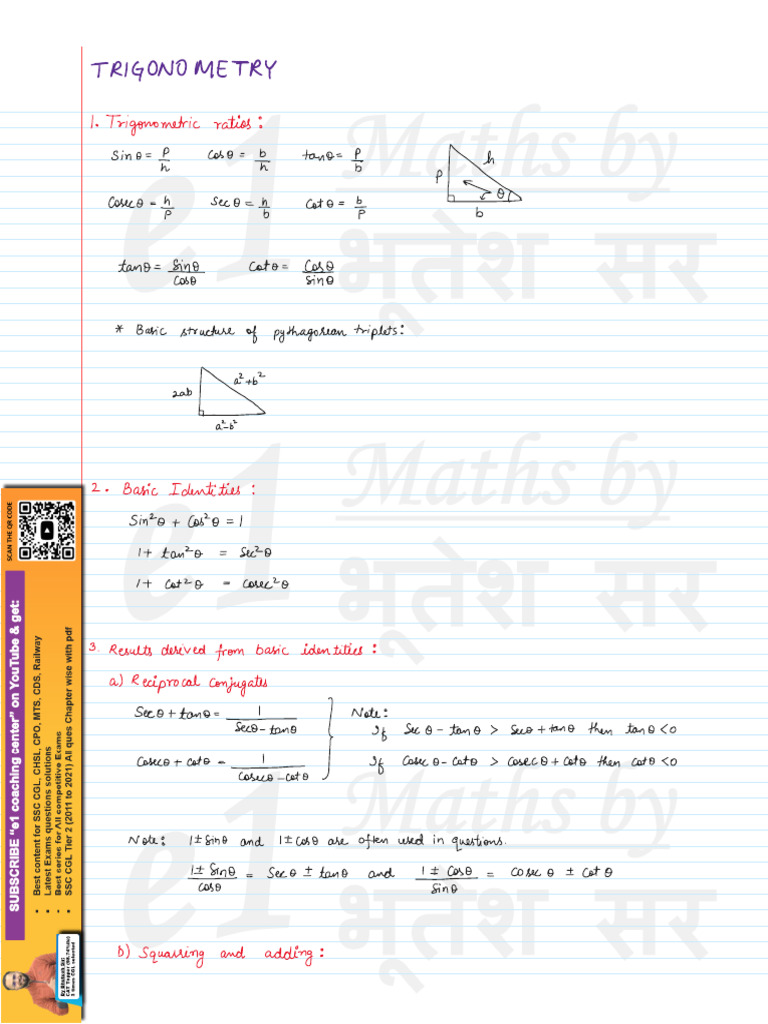 TRIGONOMETRY
1. Trigonometric ratios:
Sinθ = P/h Cosθ = b/h tanθ = P/b
Cosecθ = h/P Secθ = h/b Cotθ = b/P
P h θ b
tanθ = Sinθ/Cosθ Cotθ = Cosθ/Sinθ
* Basic structure of pythagorean triplets:
2ab a²+b²
a²-b²
2. Basic Identities:
Sin²θ + Cos²θ = 1
1 + tan²θ = Sec²θ
1 + Cot²θ = Cosec²θ
3. Results derived from basic identities:
a) Reciprocal Conjugates
Secθ + tanθ = 1/(Secθ - tanθ)
Cosecθ + Cotθ = 1/(Cosecθ - Cotθ)
Note:
If Sec θ - tanθ > Secθ + tanθ then tanθ < 0
If Cosec θ - Cotθ > Cosecθ + Cotθ then Cotθ < 0
Note: 1 ± Sinθ and 1 ± Cosθ are often used in questions.
(1 ± Sinθ)/Cosθ = Sec θ ± tanθ and (1 ± Cosθ)/Sinθ = Cosec θ ± Cotθ
b) Squaring and adding:
SCAN THE QR CODE
SUBSCRIBE "e1 coaching center" on YouTube & get:
• Best content for SSC CGL, CHSL, CPO, MTS, CDS, Railway
• Latest Exams questions solutions
• Best series for All competitive Exams
• SSC CGL Tier 2 (2011 to 2021) All ques Chapter wise with pdf
e1 Maths by
भूतेश सर
e1 Maths by
भूतेश सर
e1 Maths by
भूतेश सर